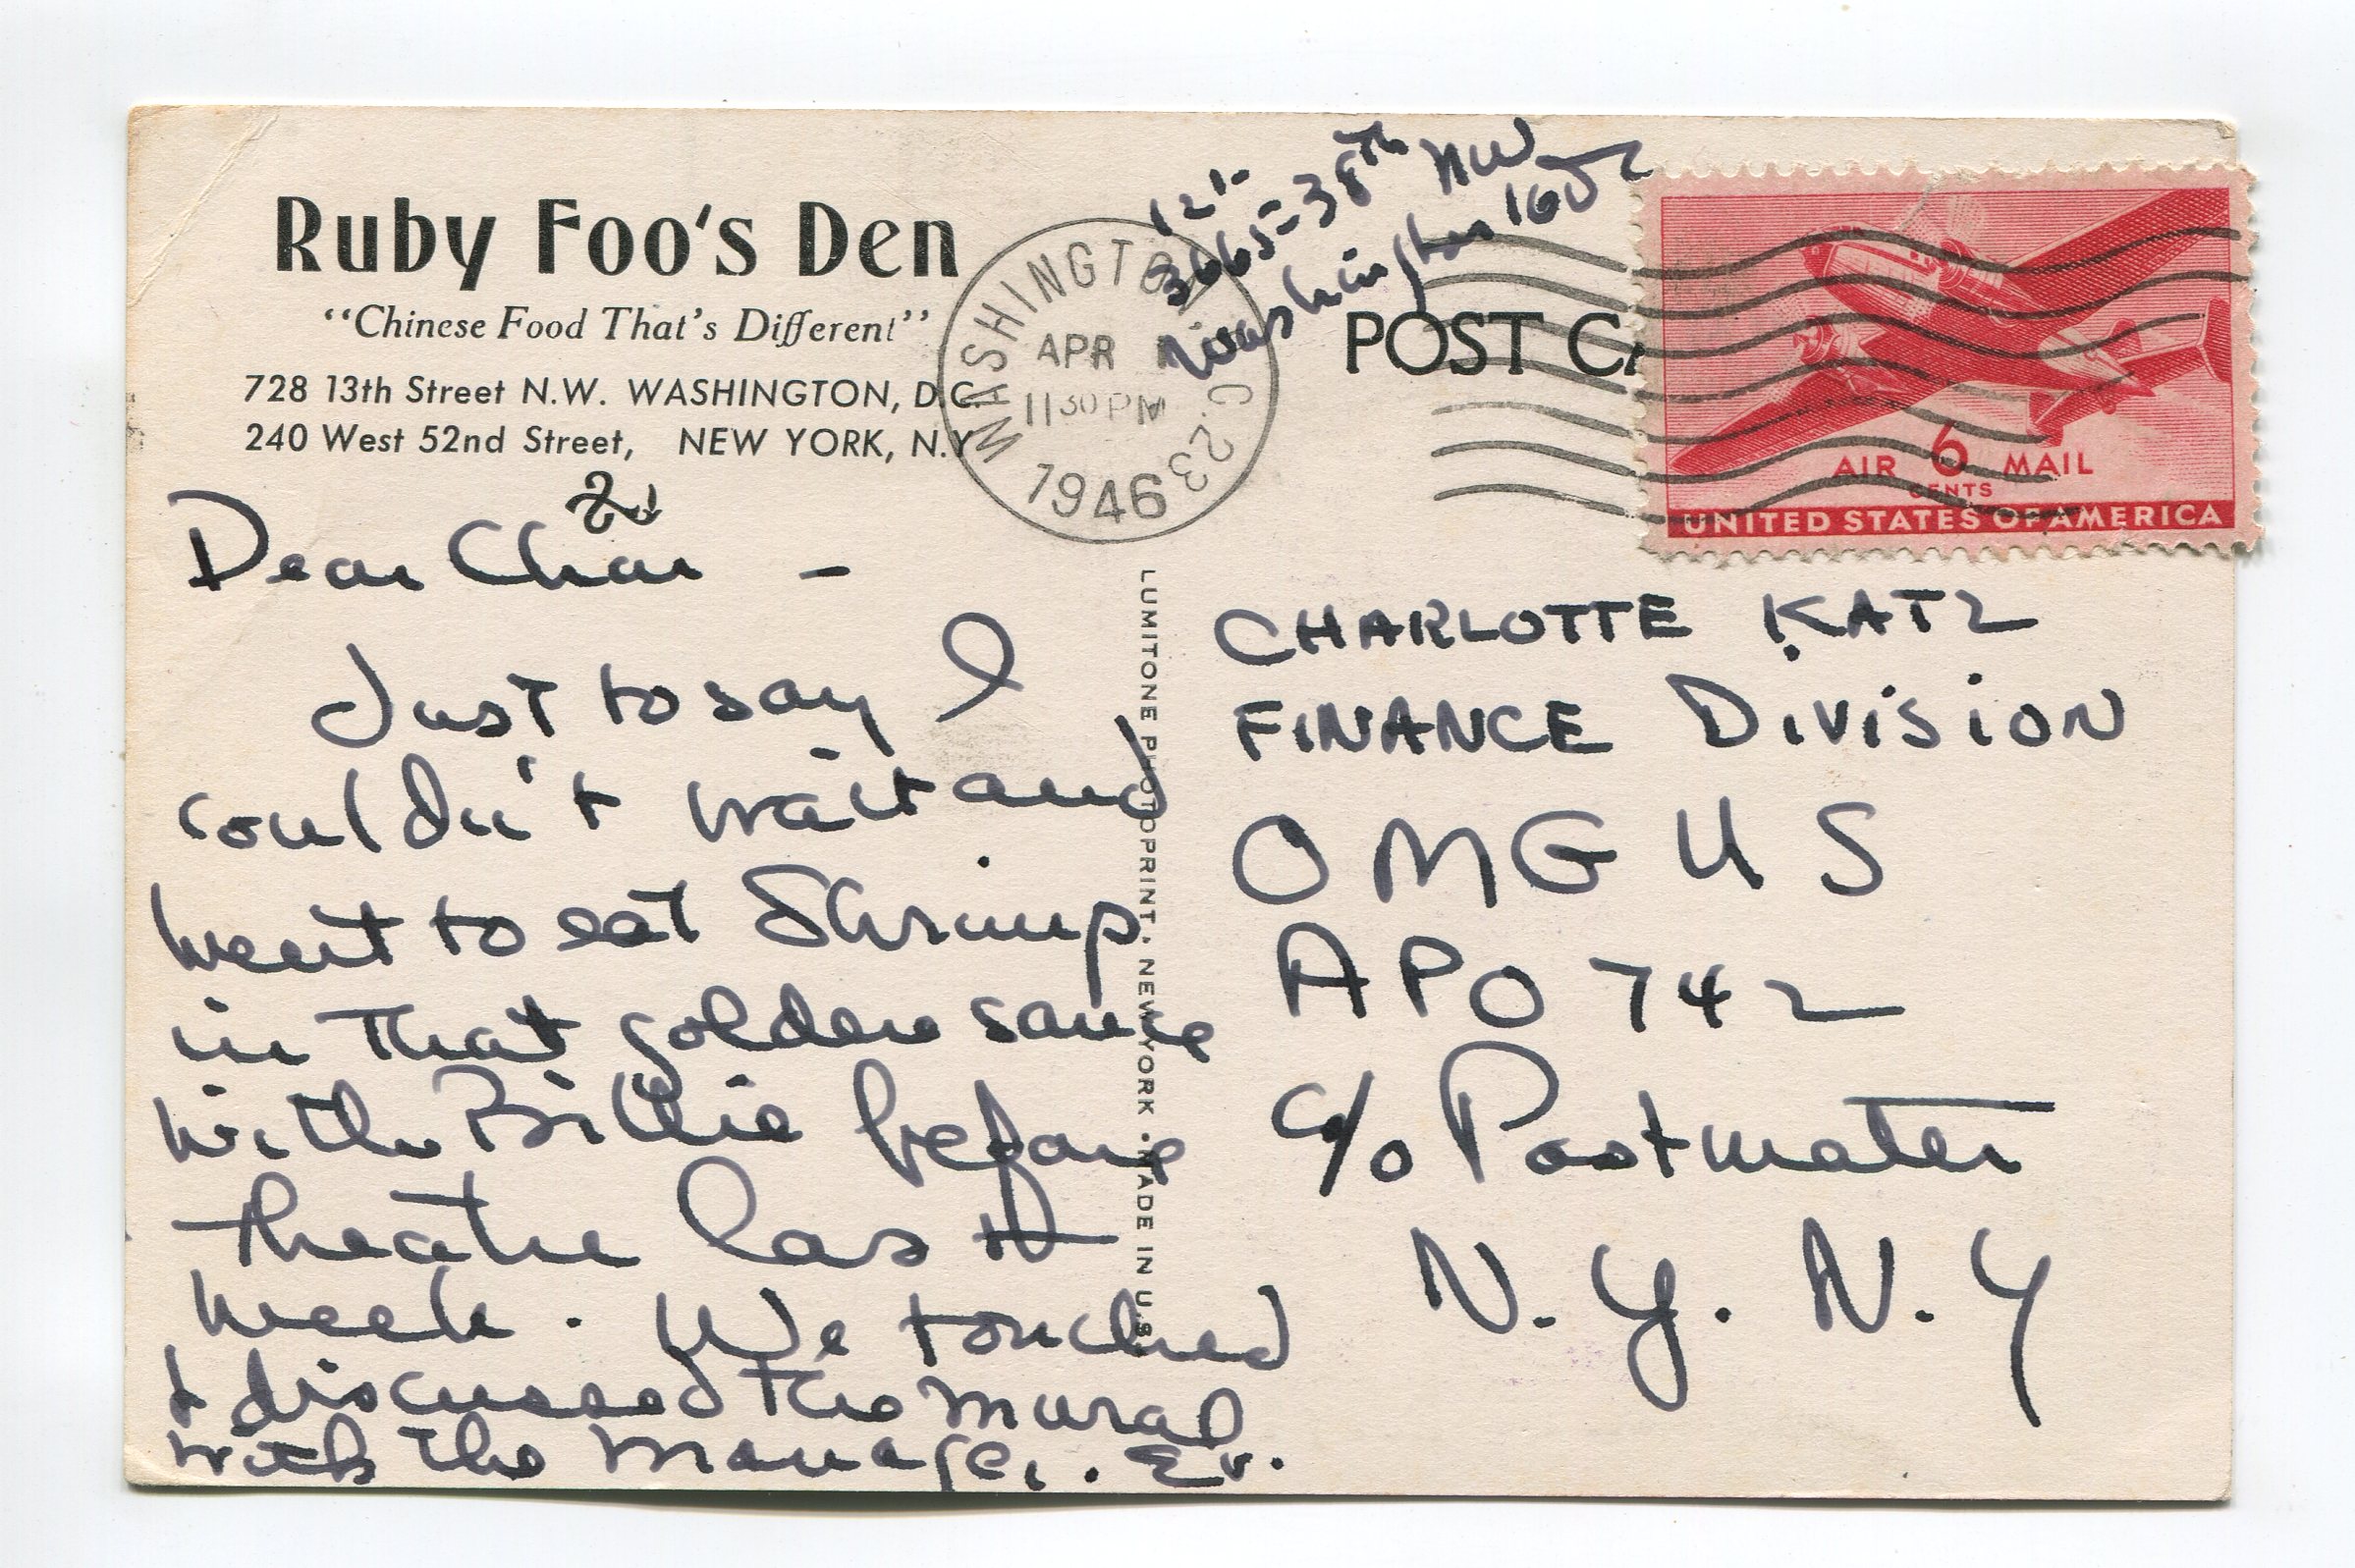 Ruby Foo's Den
"Chinese Food That's Different"
728 13th Street N.W. WASHINGTON, D.C.
240 West 52nd Street, NEW YORK, N.Y.
WASHINGTON, D.C. 23
APR
11 30 PM
1946
3665-38th NW
Washington 16 DC
POST CA
AIR 6 MAIL
CENTS
UNITED STATES OF AMERICA
Dear Char -
Just to say I
couldn't wait and
went to eat Shrimp
in that golden sauce
with Billie before
theatre last
week. We touched
& discussed the mural
with the manager. Ev.
LUMITONE PHOTOPRINT. NEW YORK • MADE IN U.S.
CHARLOTTE KATZ
FINANCE DIVISION
OMGUS
APO 742
c/o Postmater
N.Y. N.Y